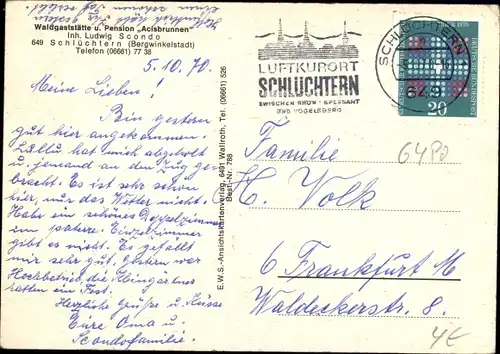 Waldgaststätte u. Pension „Acisbrunnen"
Inh. Ludwig Scondo
649 Schlüchtern (Bergwinkelstadt)
Telefon (06661) 77 38
5.10.70.
Meine Lieben!
Bin gestern
gut hier angekommen.
Lullu hat mich abgeholt
u. jemand an den Zug ge=
bracht. Es ist sehr schön
hier, nur das Wetter nicht.
Habe ein schönes Doppelzimmer
Einzelzimmer
gibt es nicht. Es gefällt
mir sehr gut. Gestern war
Hochbetrieb, die
hatten ein Fest.
Herzliche Grüße u. Küsse
Eure Oma u.
Scondofamilie.
E.W.S.-Ansichtskartenverlag, 6491 Wallroth, Tel. (06661) 526
Bestl.-Nr. 788
LUFTKURORT
SCHLÜCHTERN
ZWISCHEN RHÖN - SPESSART
UND VOGELSBERG
SCHLÜCHTERN
649
20
6480
Familie
H. Volk
6 Frankfurt M
Waldeckerstr. 8.
4€